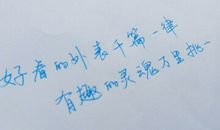 好看的外表千篇一律
有趣的灵魂万里挑一